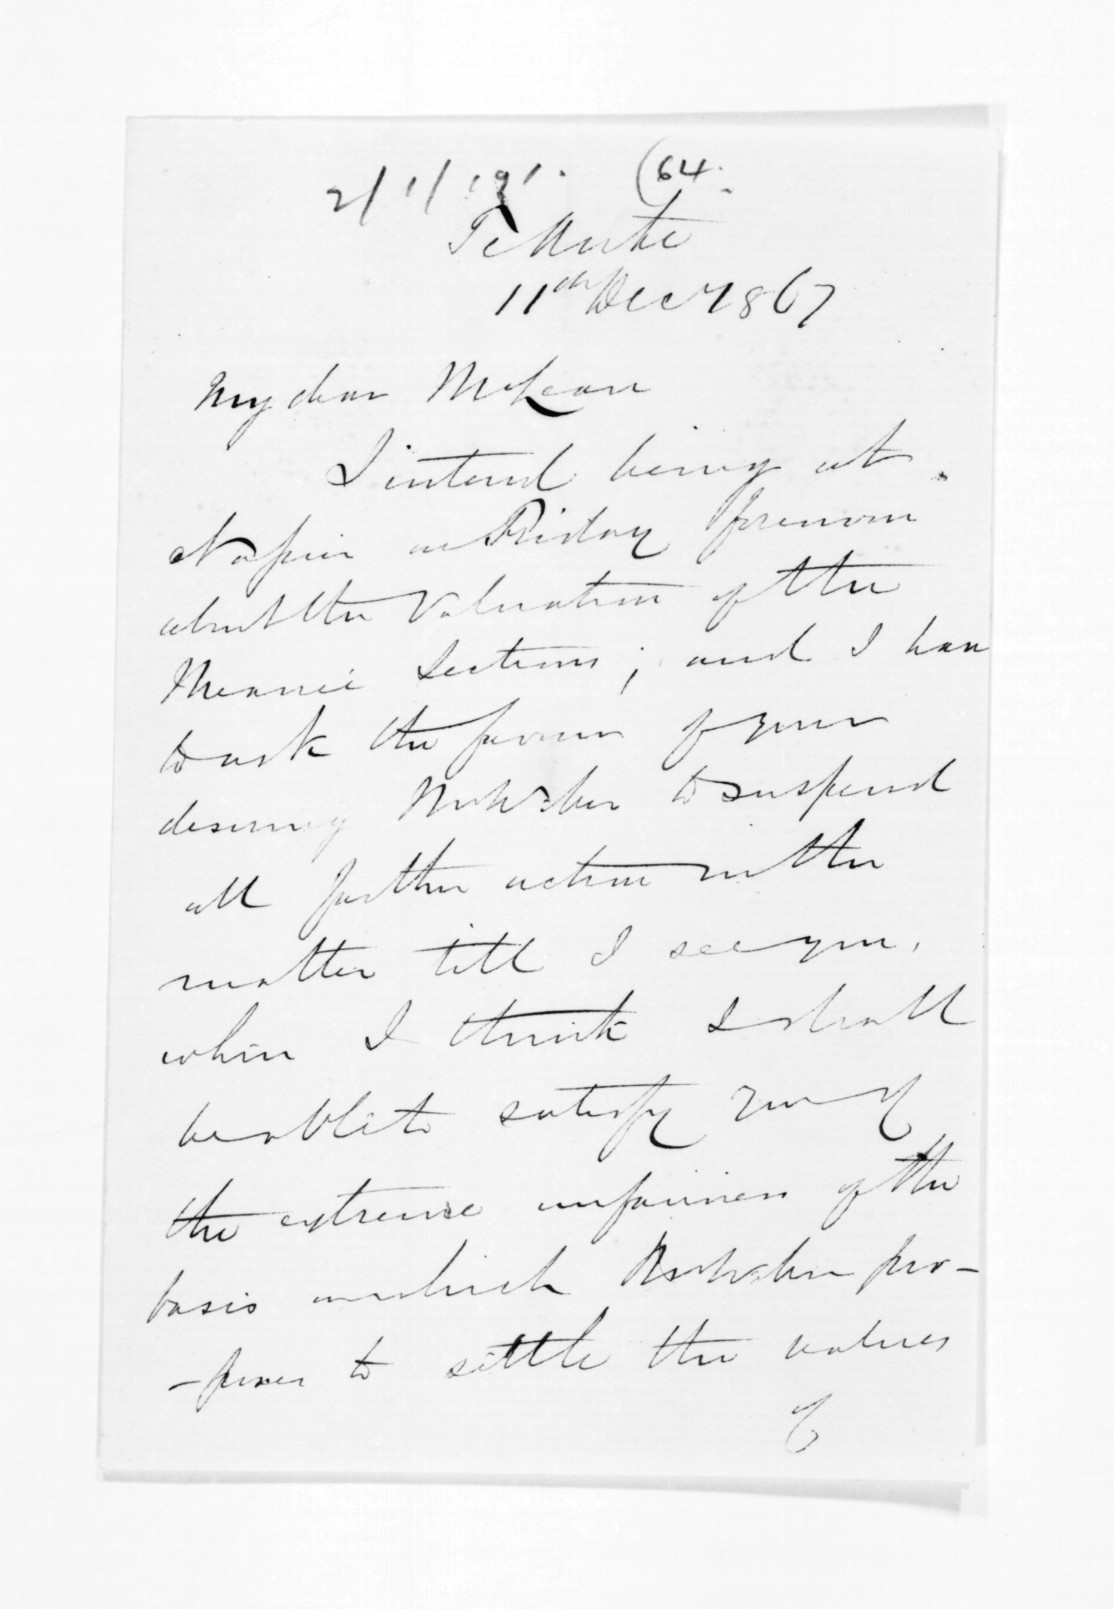 2/1/191. (64.
Te Aute
11th Decr 1867
My dear McLean
I intend being at
Napier on Friday forenoon
about the Valuation of the
Meanee Sections; and I have
to ask the favour of your
desiring Mr Weber to suspend
all further action in the
matter till I see you,
when I think I shall
be able to satisfy you of
the extreme unfairness of the
basis on which Mr Weber pro-
-poses to settle the values
of